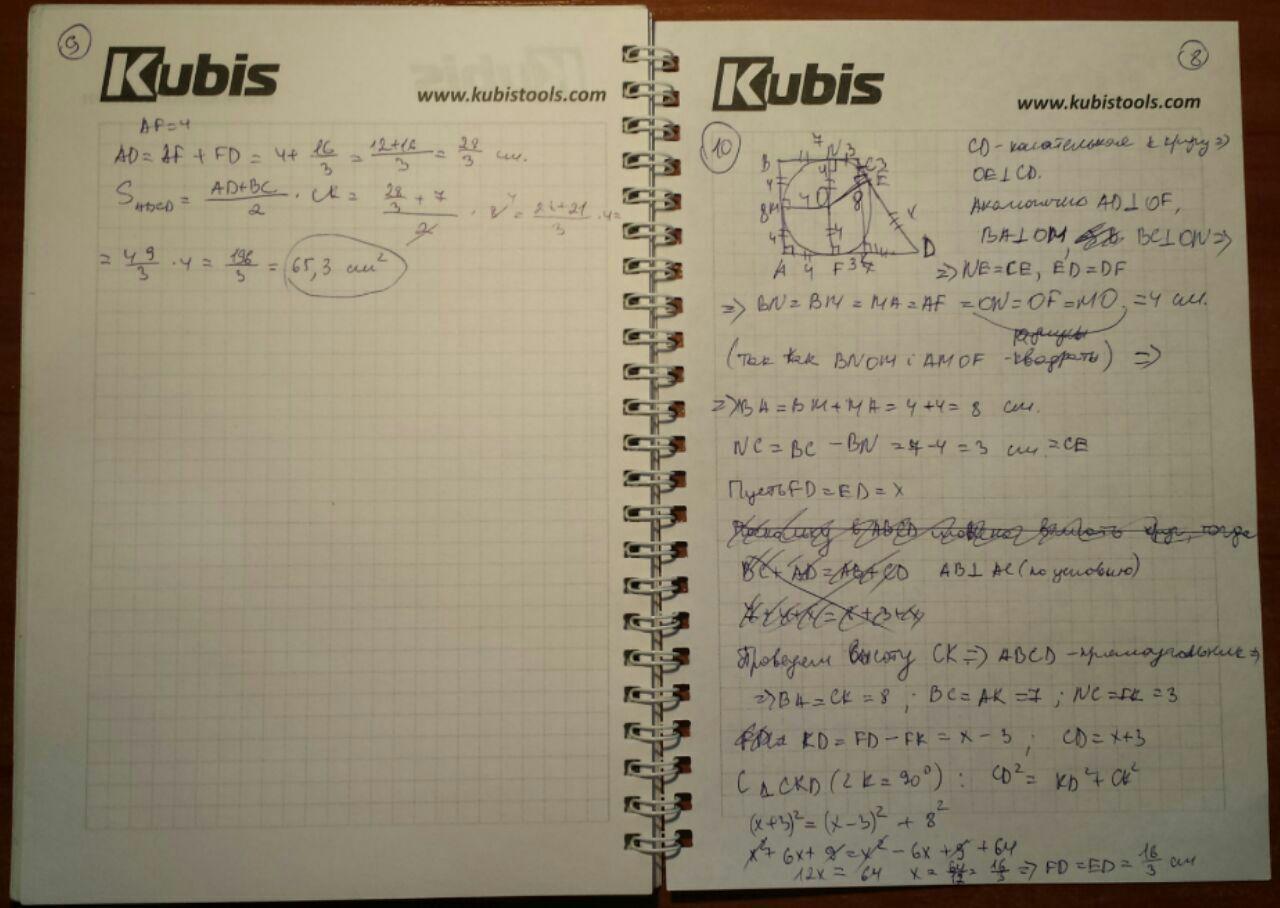 9
Kubis
www.kubistools.com
AF=4
AD = AF + FD = 4+ 16/3 = 12+16/3 = 28/3 см.
S ABCD = AD+BC/2 · CK = 28/3 + 7 / 2 · 8 4 = 28+21/3 · 4 =
= 49/3 · 4 = 196/3 = 65,3 см²
8
Kubis
www.kubistools.com
10
7
B 4 N 3 C 3 E
4 4
8 M 4 O 8 x
4 4
A 4 F 3 K D
CD - касательная к кругу ⇒
OE⊥CD.
Аналогично AD⊥OF,
BA⊥OM, BC⊥ON ⇒
⇒ NE=CE, ED=DF
⇒ BN = BM = MA = AF = ON = OF = MO = 4 см.
радиусы
(так как BNOM и AMOF - квадраты) ⇒
⇒ BA = BM + MA = 4+4 = 8 см.
NC = BC - BN = 7-4 = 3 см = CE
Пусть FD = ED = x
BC + AD = AB + CD AB⊥AC (по условию)
Проведем высоту CK ⇒ ABCD - прямоугольник ⇒
⇒ BA = CK = 8 ; BC = AK = 7 ; NC = FK = 3
KD = FD - FK = x - 3 ; CD = x+3
С △CKD (∠K = 90°) : CD² = KD² + CK²
(x+3)² = (x-3)² + 8²
x² + 6x + 9 = x² - 6x + 9 + 64
12x = 64 x = 64/12 = 16/3 ⇒ FD = ED = 16/3 см